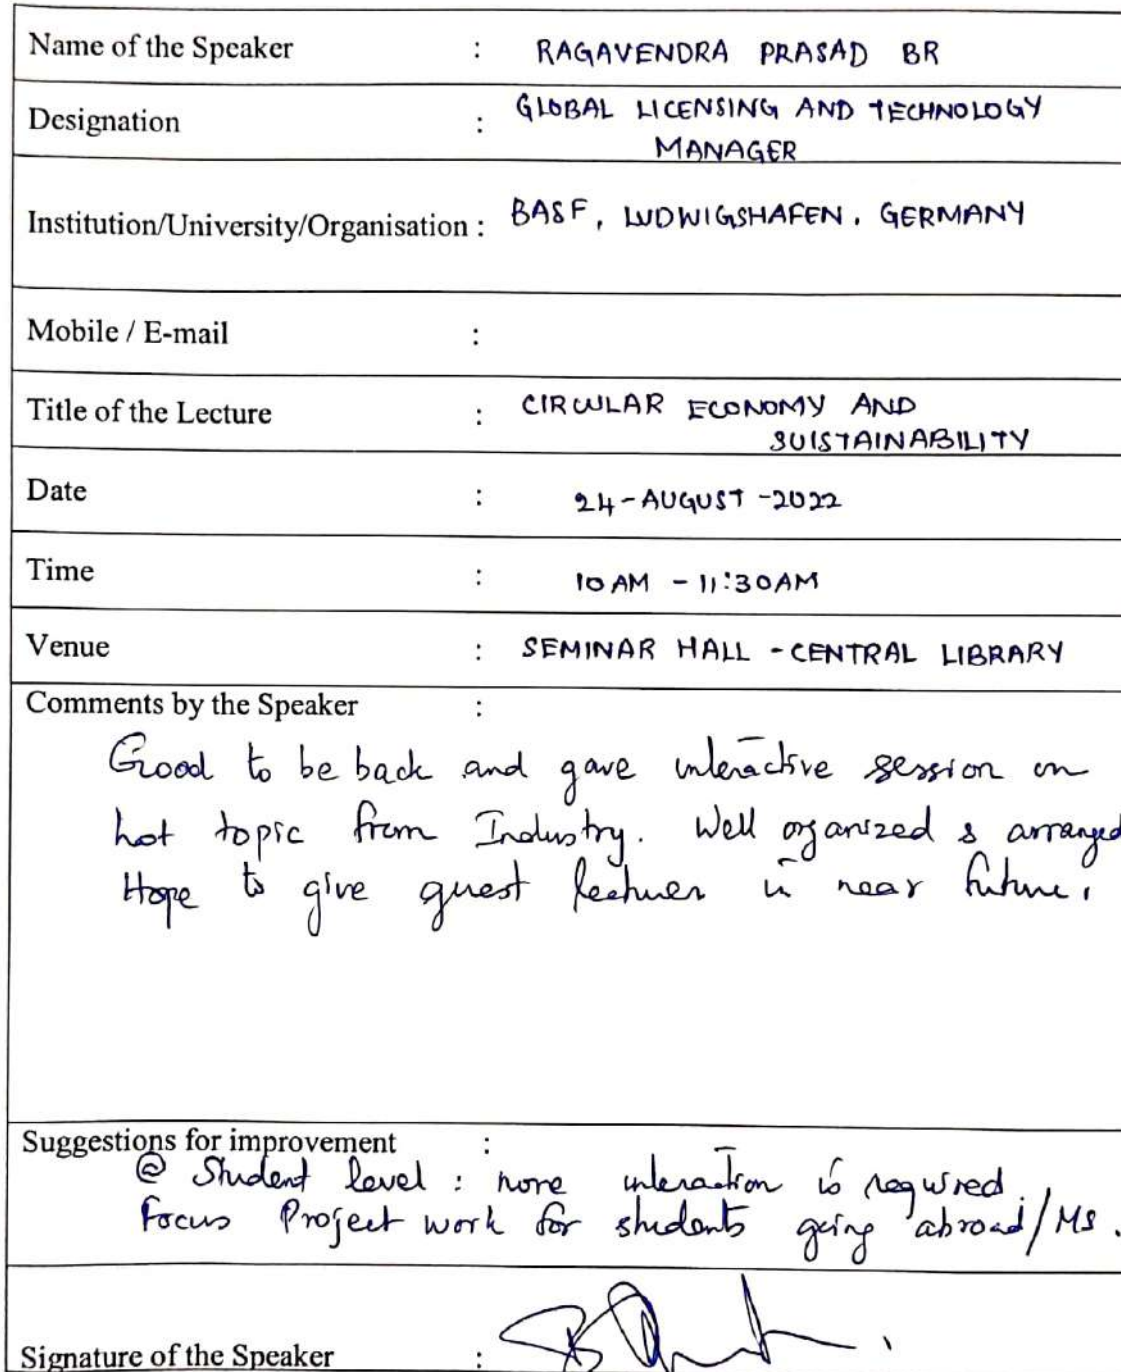 Name of the Speaker : RAGAVENDRA PRASAD BR
Designation : GLOBAL LICENSING AND TECHNOLOGY
MANAGER
Institution/University/Organisation : BASF, LUDWIGSHAFEN, GERMANY
Mobile / E-mail :
Title of the Lecture : CIRCULAR ECONOMY AND
SUISTAINABILITY
Date : 24-AUGUST-2022
Time : 10 AM - 11:30AM
Venue : SEMINAR HALL - CENTRAL LIBRARY
Comments by the Speaker :
Good to be back and gave interactive session on
hot topic from Industry. Well organized & arranged
Hope to give guest lectures in near future.
Suggestions for improvement :
@ Student level : more interaction is required.
Focus Project work for students going abroad/MS.
Signature of the Speaker :